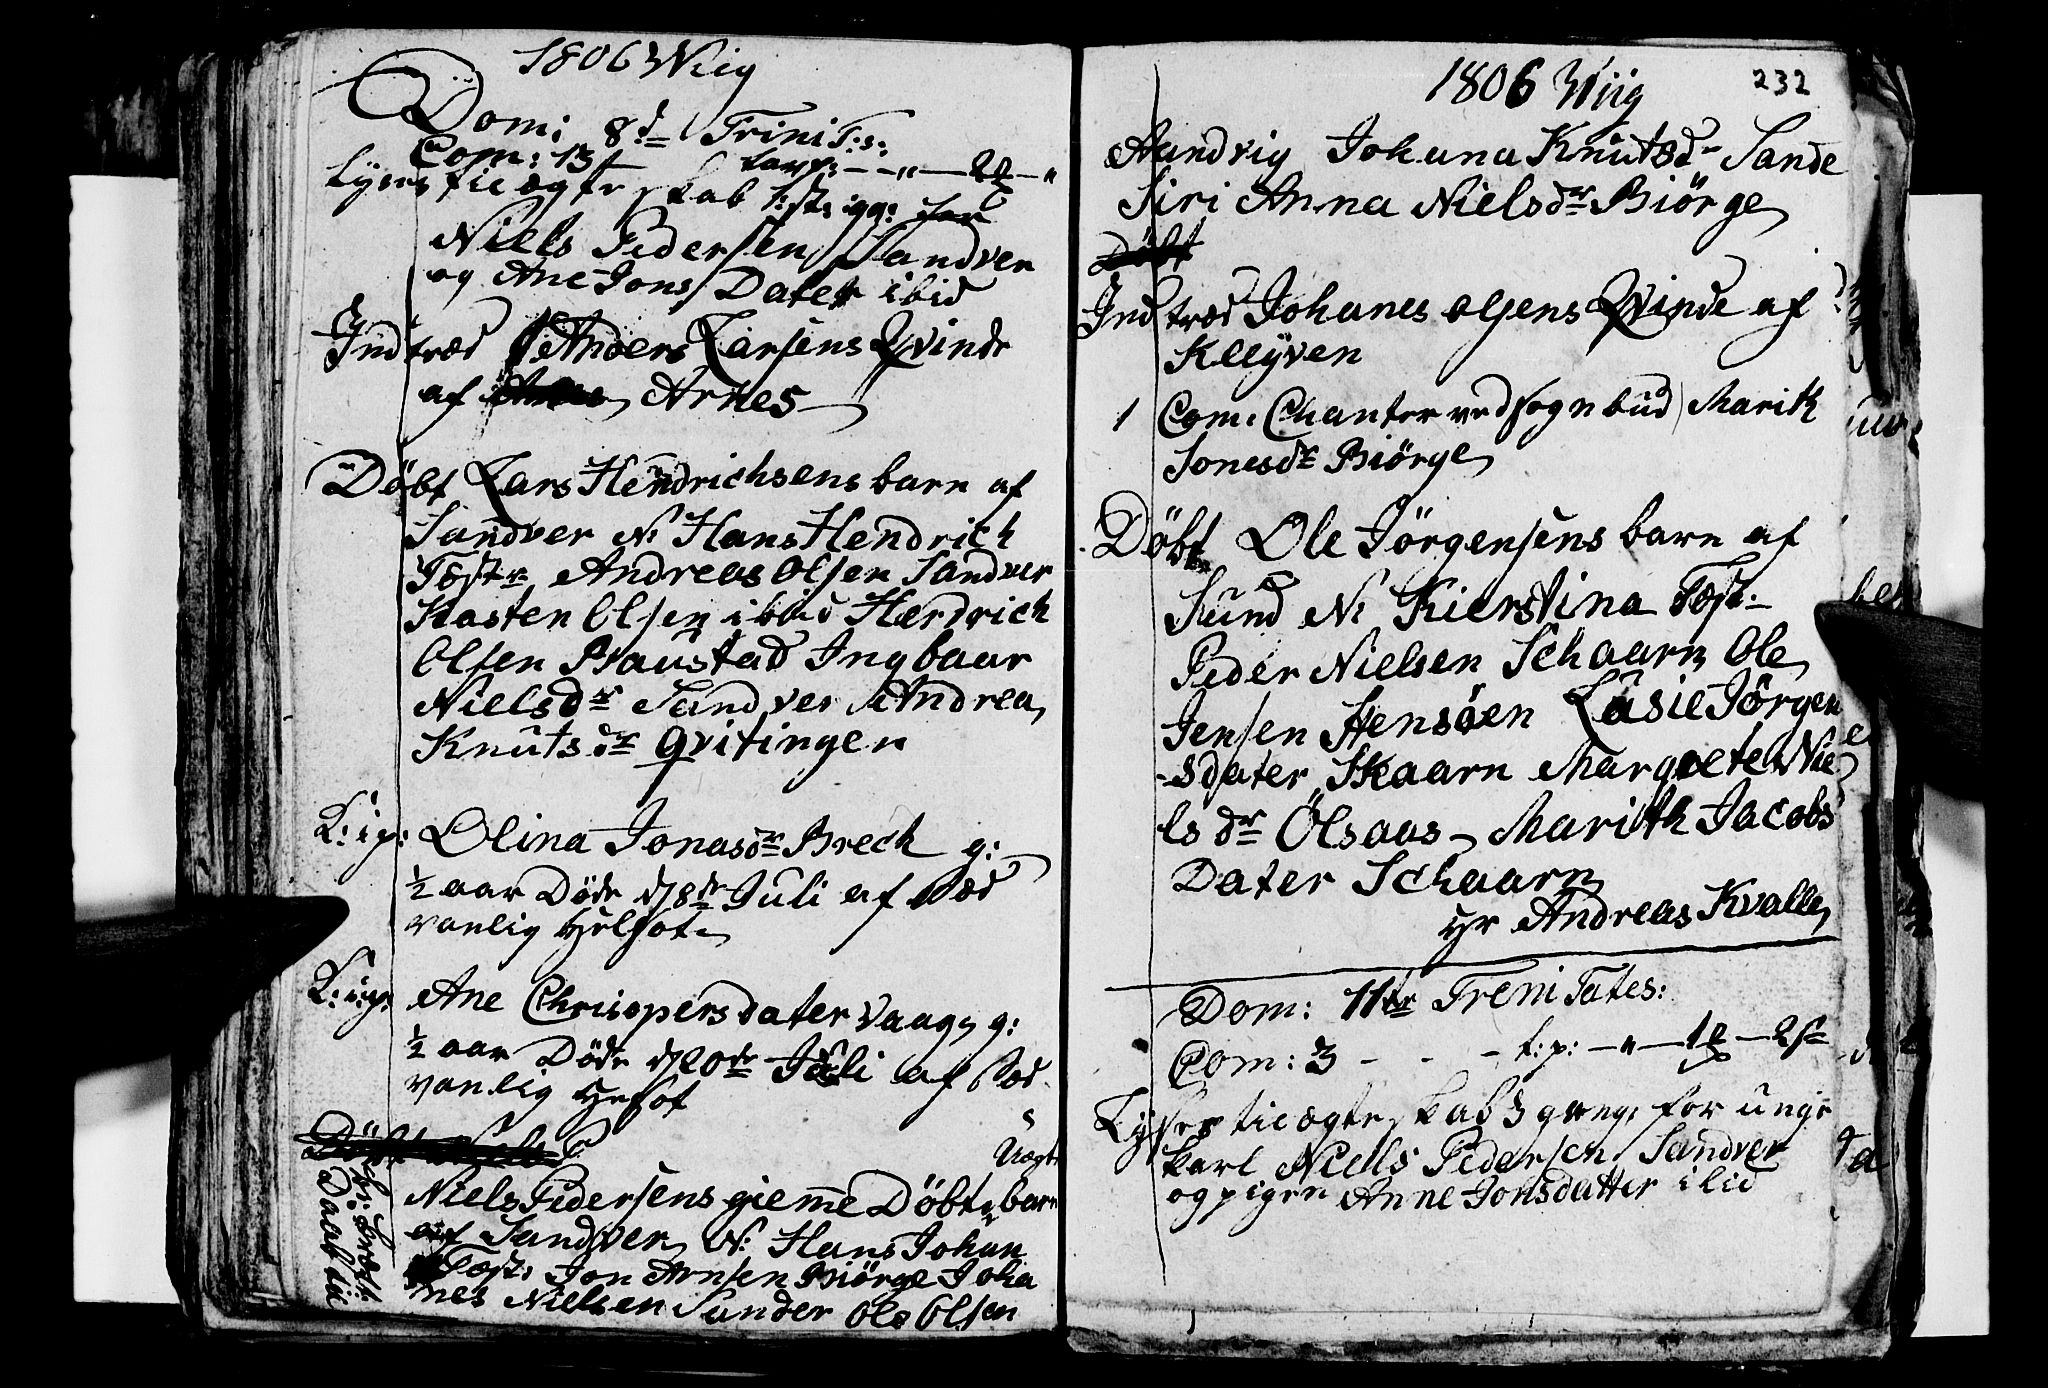 1806 Wiig
Dom: 8de Trinit:s:
Com: 13
Lyses til ægteskab 1:st: gg: for
Niels Pedersen Sandver
og Ane Jons Dater ibid
Indtræd Anders Larsens Qvinde
af Arnes
Döbt Lars Hendrichsens barn af
Sandver N: Hans Hendrich
Test: Andreas Olsen Sandver
Kasten Olsen ibid Hendrich
Olsen Braustad Ingbaar
Nielsdr Sandver Andrea
Knutsdr Qvitingen
L: ip: Olina Jonasdr Brech g:
½ aar Döde d 18de Juli af sæd
vanlig Helsot
L: ip: Ane Chrisopersdater Vaag g:
½ aar Döde d 20de Juli af sæd
vanlig Helsot
Döbt Niels P
Uægt
Niels Pedersens giemme Döbt barn
af Sandver N: Hans Johan
Test: Jon Arnsen Biörge Joha
nes Nielsen Sander Ole Olsen
Daab til
1806 Wiig 232
Aandvig Johana Knutsd Sande
Siri Anna Nielsdr Biörge
Döbt
Indtræd Johanes Olsens Qvinde af
Kleyven
1 Com: Chanter ved sognebud Marith
Jonesdr Biörge
Döbt Ole Jörgensens barn af
Sund N: Kierstina Test:
Peder Nielsen Schaarn Ole
Jensen Stensöen Lusie Jörgen
sdater Skaarn Margrete Nie
lsdr Ölsaas Marith Jacobs
Dater Schaarn
yr Andreas Kvalle
Dom: 11te Trenitates:
Com: 3 - - - t:p: - " - 1 - 2
Lyses til ægteskab 3 gang: for unge
karl Niels Pedersen Sandver
og pigen Anne Jonsdatter ibid